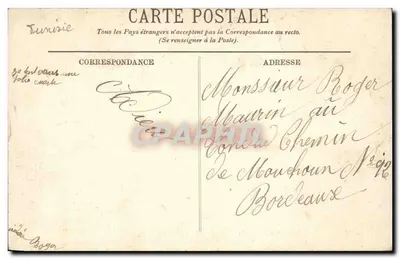 Tunisie
CARTE POSTALE
Tous les Pays étrangers n'acceptent pas la Correspondance au recto.
(Se renseigner à la Poste).
CORRESPONDANCE
ADRESSE
CPAPHIL
Monsieur Roger
Maurin au
Chemin
de Mouchoun No 92
Bordeaux
Roger